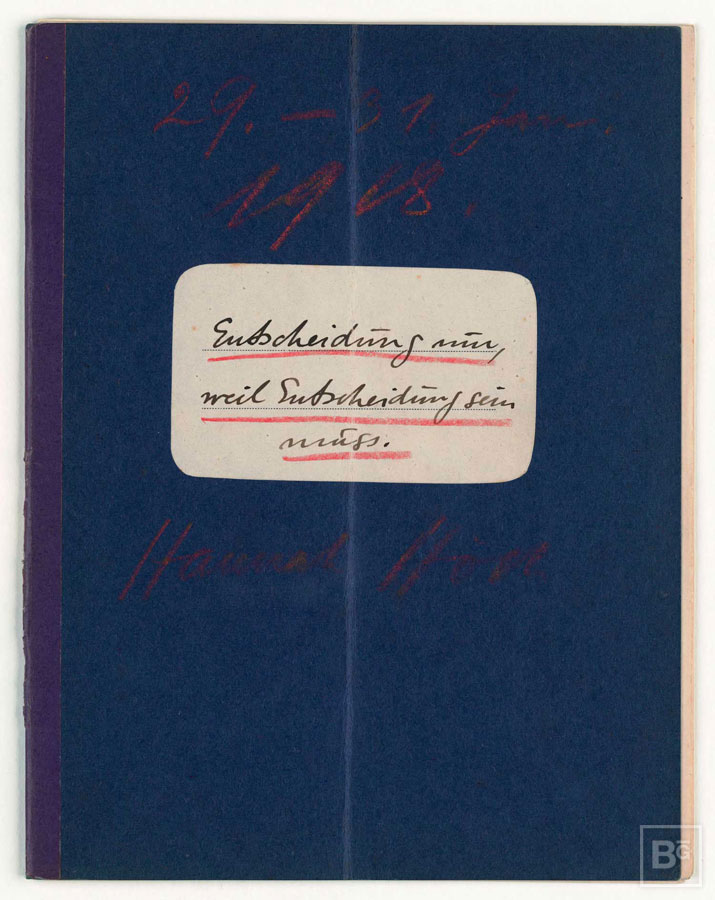 29. – 31. Jan.
1918.
Entscheidung nun,
weil Entscheidung sein
muss.
Hannah Höch.
BG